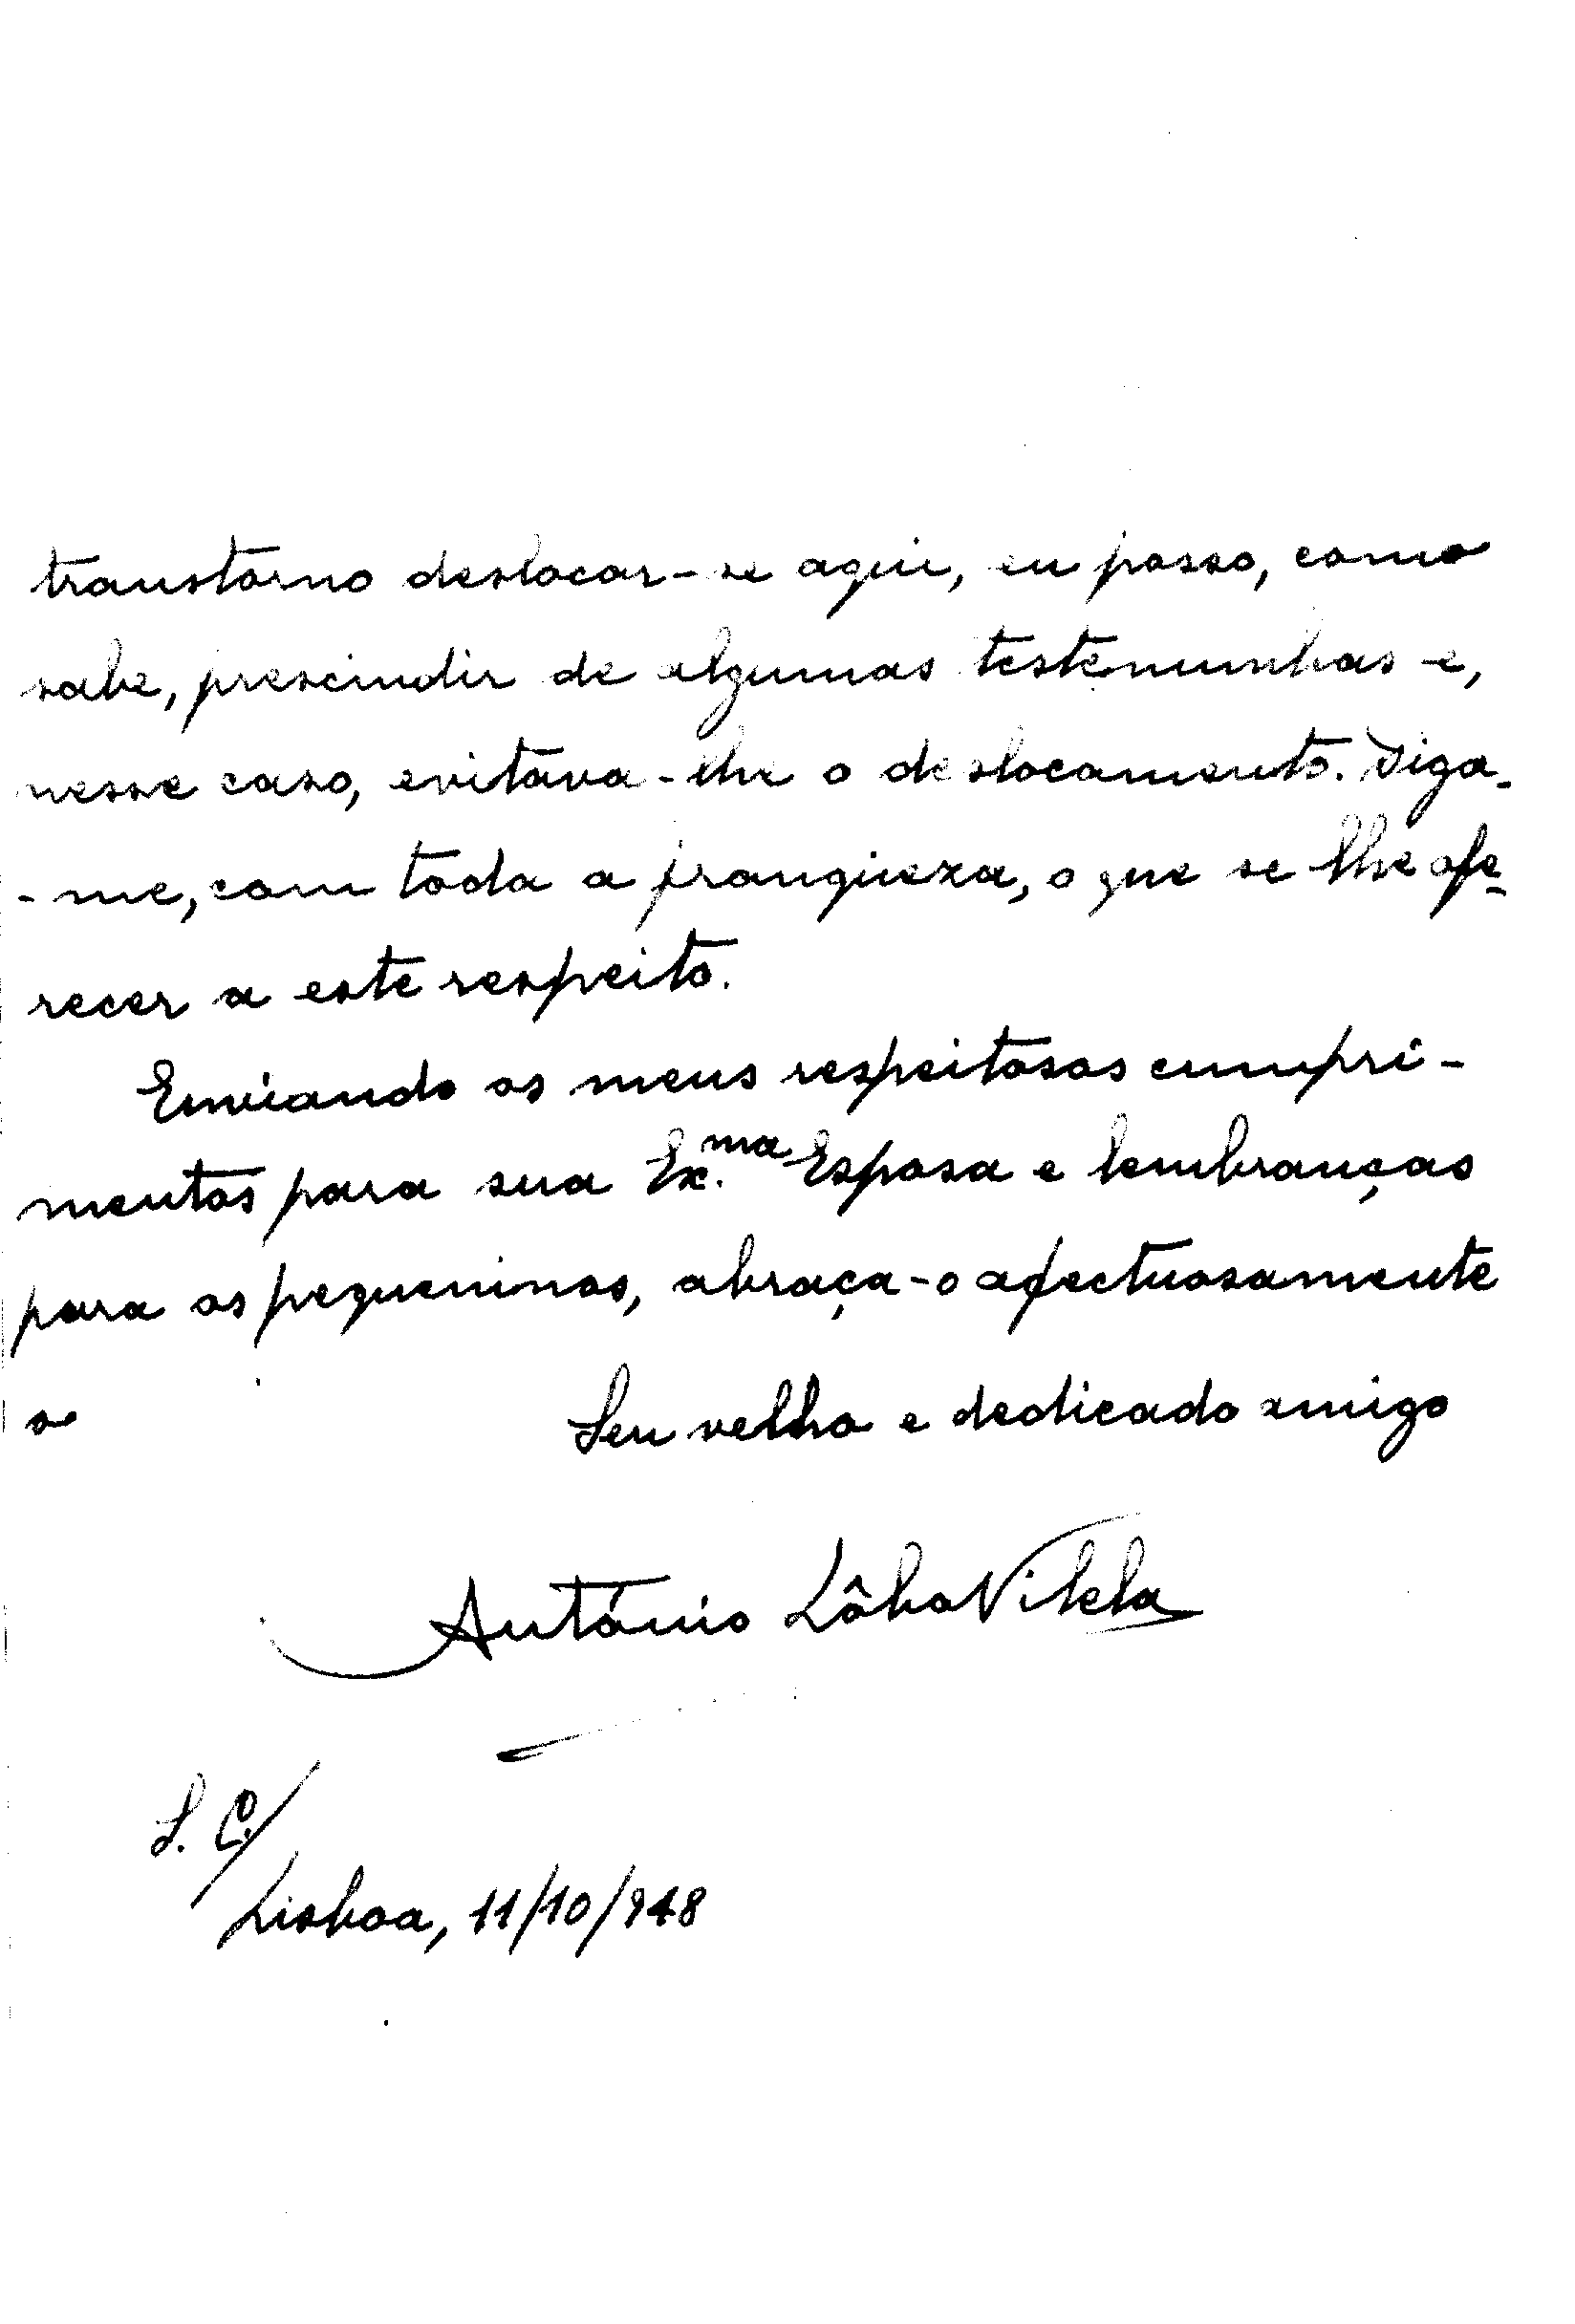 transtorno deslocar-se aqui, eu posso, como
sabe, prescindir de algumas testemunhas e,
nesse caso, evitava-lhe o deslocamento. Diga-
-me, com toda a franqueza, o que se lhe ofe-
recer a este respeito.
Enviando os meus respeitosos cumpri-
mentos para sua Ex.ma Esposa e lembranças
para os pequeninos, abraça-o afectuosamente
o
Seu velho e dedicado amigo
António Lôbo Vilela
S. C/
Lisboa, 11/10/948